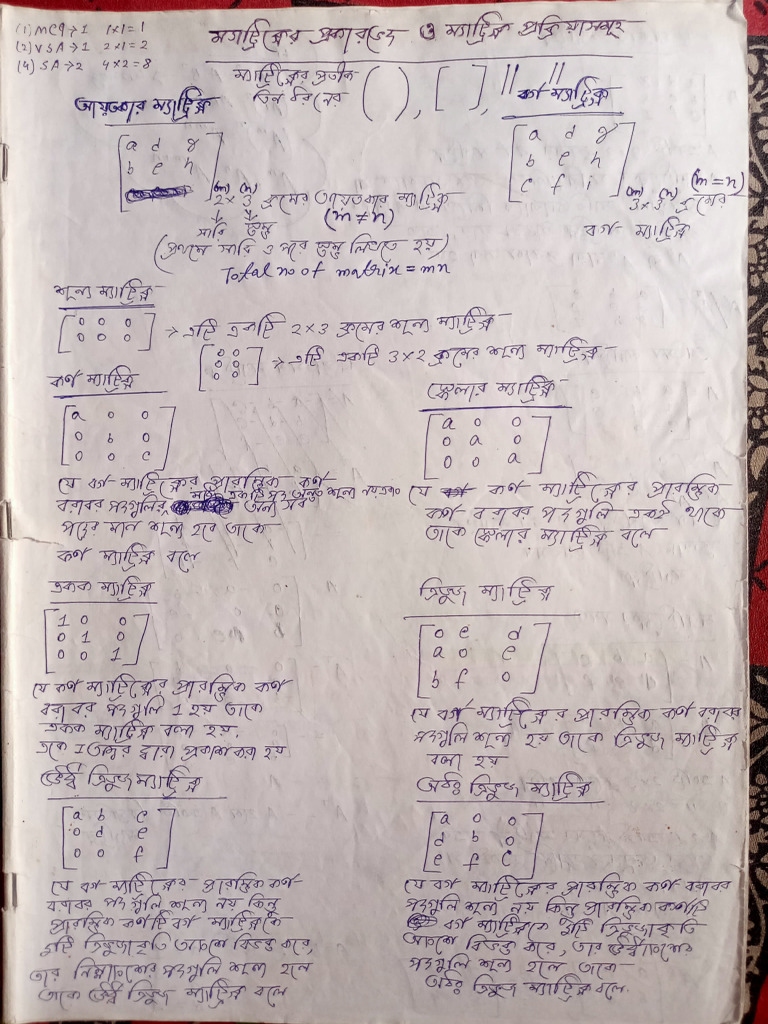 (1) MCQ→1 1×1=1
(2) VSA→1 2×1=2
(4) SA→2 4×2=8
ম্যাট্রিক্সের প্রকারভেদ ও ম্যাট্রিক্স প্রক্রিয়াসমূহ
ম্যাট্রিক্সের প্রতীক
তিন ধরনের ( ), [ ], || ||
আয়তাকার ম্যাট্রিক্স
[a d g
b e h]
(m) (n)
2 × 3 ক্রমের আয়তাকার ম্যাট্রিক্স
সারি স্তম্ভ (m ≠ n)
(প্রথমে সারি ও পরে স্তম্ভ লিখতে হয়)
Total no of matrix = mn
বর্গ ম্যাট্রিক্স
[a d g
b e h
c f i]
(m) (n) (m = n)
3 × 3 ক্রমের
বর্গ ম্যাট্রিক্স
শূন্য ম্যাট্রিক্স
[0 0 0
0 0 0] → এটি একটি 2×3 ক্রমের শূন্য ম্যাট্রিক্স
[0 0
0 0
0 0] → এটি একটি 3×2 ক্রমের শূন্য ম্যাট্রিক্স
কর্ণ ম্যাট্রিক্স
[a 0 0
0 b 0
0 0 c]
যে বর্গ ম্যাট্রিক্সের প্রারম্ভিক কর্ণ
বরাবর পদগুলির অন্য সব
পদের মান শূন্য হবে তাকে
কর্ণ ম্যাট্রিক্স বলে
স্কেলার ম্যাট্রিক্স
[a 0 0
0 a 0
0 0 a]
যে কর্ণ ম্যাট্রিক্সের প্রারম্ভিক
কর্ণ বরাবর পদগুলি একই থাকে
তাকে স্কেলার ম্যাট্রিক্স বলে
একক ম্যাট্রিক্স
[1 0 0
0 1 0
0 0 1]
যে কর্ণ ম্যাট্রিক্সের প্রারম্ভিক কর্ণ
বরাবর পদগুলি 1 হয় তাকে
একক ম্যাট্রিক্স বলা হয়.
একে I অক্ষর দ্বারা প্রকাশ করা হয়
ত্রিভুজ ম্যাট্রিক্স
[0 c d
a 0 e
b f 0]
যে বর্গ ম্যাট্রিক্সের প্রারম্ভিক কর্ণ বরাবর
পদগুলি শূন্য হয় তাকে ত্রিভুজ ম্যাট্রিক্স
বলা হয়
উর্ধ্ব ত্রিভুজ ম্যাট্রিক্স
[a b c
0 d e
0 0 f]
যে বর্গ ম্যাট্রিক্সের প্রারম্ভিক কর্ণ
বরাবর পদগুলি শূন্য নয় কিন্তু
প্রারম্ভিক কর্ণটি বর্গ ম্যাট্রিক্সকে
দুটি ত্রিভুজাকৃতি অংশে বিভক্ত করে,
তার নিম্নাংশের পদগুলি শূন্য হলে
তাকে উর্ধ্ব ত্রিভুজ ম্যাট্রিক্স বলে
অধঃ ত্রিভুজ ম্যাট্রিক্স
[a 0 0
d b 0
e f c]
যে বর্গ ম্যাট্রিক্সের প্রারম্ভিক কর্ণ বরাবর
পদগুলি শূন্য নয় কিন্তু প্রারম্ভিক কর্ণটি
বর্গ ম্যাট্রিক্সকে দুটি ত্রিভুজাকৃতি
অংশে বিভক্ত করে, তার উর্ধ্বাংশের
পদগুলি শূন্য হলে তাকে
অধঃ ত্রিভুজ ম্যাট্রিক্স বলে.